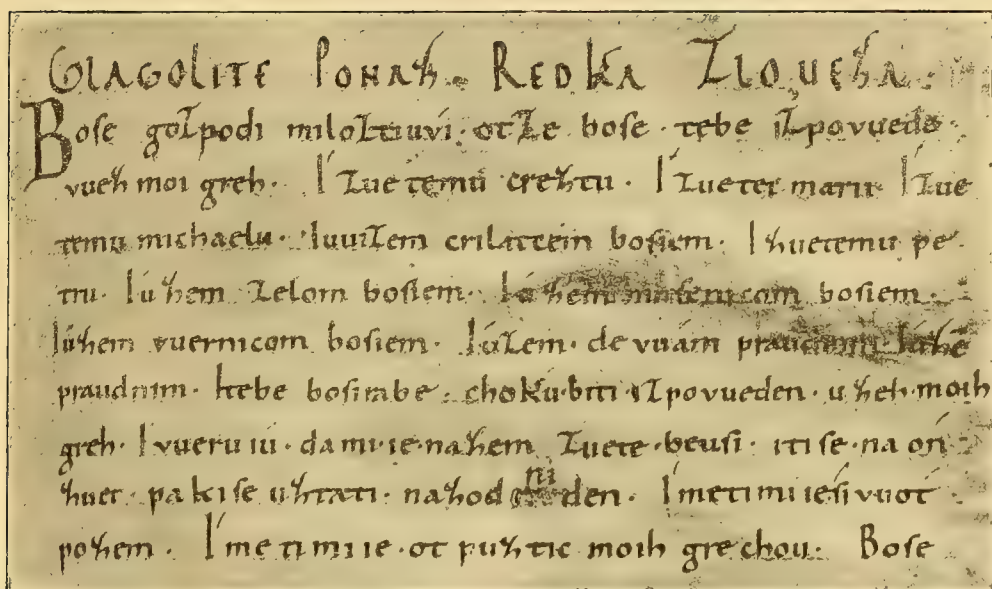 GLAGOLITE PONAZ. REDKA ZLOUEZA.
Bose gozpodi miloztiuvi. otze bose. tebe izpovuede.
vuez moi greh. I zuetemu creztu. I zuetei marii. I zue
temu michaelu. Iuuizem crilatcem bosiem. I zuetemu pe
tru. Iúzem zelom bosiem. Iúzem musenicom bosiem.
Iúzem vuernicom bosiem. Iúzem. devuám praudnim. Iúzē
praudnim. Itebe bosirabe. choKú. biti. izpovueden. uzeh. moih
greh. I vueruiú. da mi. ie. nazem. zuete. beusi. iti se. na oń
zuet. paki se uztati. nazodni den. Imeti mi ie sivuot
pozem. Imeti mi ie. ot puztic moih grechou. Bose